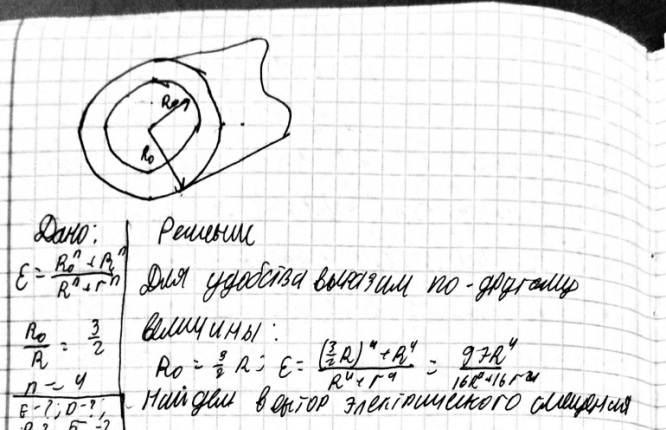 R
R₀
Дано:
ε = (R₀ⁿ + Rⁿ) / (Rⁿ + rⁿ)
R₀ / R = 3 / 2
n = 4
E - ?; D - ?;
Решение
Для удобства выразим по-другому
величины:
R₀ = 3/2 R; ε = ((3/2 R)⁴ + R⁴) / (R⁴ + r⁴) = 97R⁴ / (16R⁴ + 16r⁴)
Найдем вектор электрического смещения